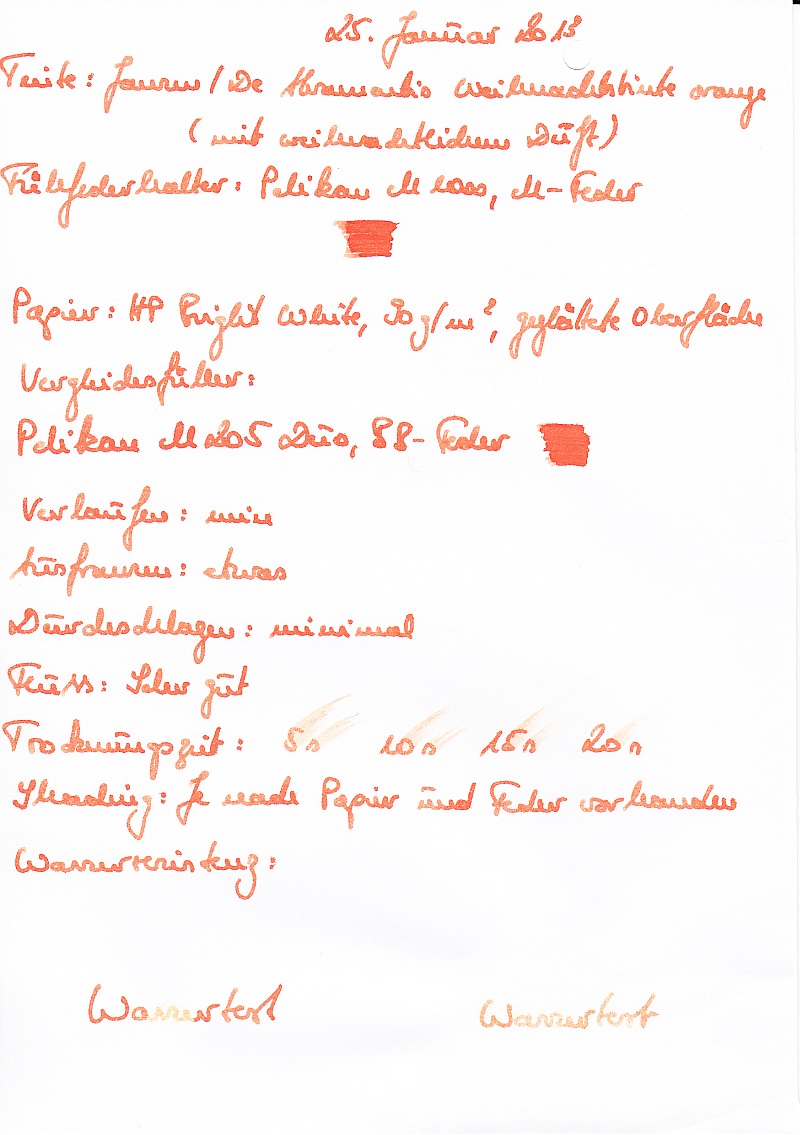 25. Januar 2013
Tinte: Jansen / De Atramentis Weihnachtstinte orange
(mit weihnachtlichem Duft)
Füllfederhalter: Pelikan M 1000, M-Feder
Papier: HP Bright White, 90 g/m², geglättete Oberfläche
Vergleichsfüller:
Pelikan M 205 Duo, BB-Feder
Verlaufen: nein
Ausfransen: etwas
Durchschlagen: minimal
Fluss: Sehr gut
Trocknungszeit: 5s 10s 15s 20s
Shading: Je nach Papier und Feder vorhanden
Wasserresistenz:
Wassertest Wassertest